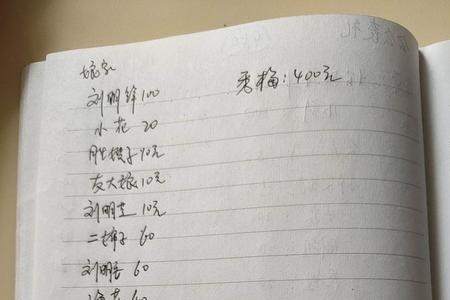 娘家
刘明锋100
秀梅：400元
小花 20
胜嫂子10元
友大娘10元
刘明芝 10元
二婶子 60
刘明 60